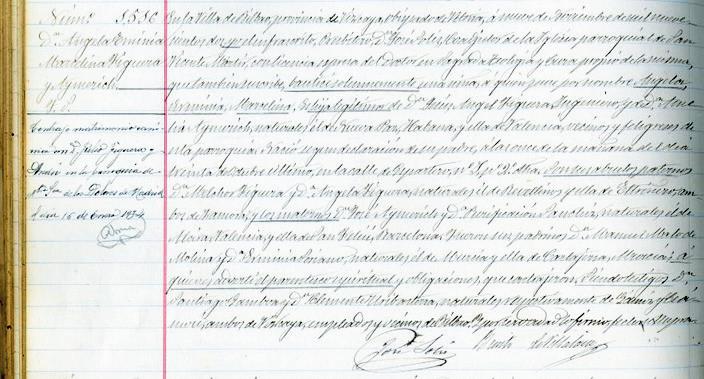 Núm.º 1.510
D.ª Angela Erminia
Marcelina Figuera
y Aymerich.
H. L.
Contrajo matrimonio canó-
nico con D. Julio Figuera y
Andú en la parroquia de
Ntra. Sra. de los Dolores de Madrid
el día 16 de Enero 1934
En la Villa de Bilbao, provincia de Vizcaya, obispado de Vitoria, á nueve de Noviembre de mil nueve-
cientos dos, yo el infrascrito, Presbítero D.n José Solís, Coadjutor de la Iglesia parroquial de San
Vicente Mártir, con licencia expresa del Doctor en Sagrada Teología y Cura propio de la misma,
que también suscribe, bauticé solemnemente una niña, á quien puse por nombre Angela,
Erminia, Marcelina. Es hija legítima de D.n Luis Angel Figuera, Ingeniero, y de D.ª Ame-
lia Aymerich, naturales, él de Habana, y ella de Valencia, vecinos y feligreses de
esta parroquia. Nació según declaración de su padre, á las once de la mañana del día
treinta de Octubre último, en la calle de Espartero, n.º Son sus abuelos paternos
D.n Melchor Figuera y D.ª Angela Figuera, naturales, él de y ella de am-
bos de Zamora; y los maternos D.n José Aymerich y D.ª Purificación naturales, él de
Moira, Valencia, y ella de San Feliú, Barcelona. Fueron sus padrinos D.n Manuel Malo de
Molina y D.ª Erminia Soriano, naturales, él de Murcia y ella de Cartagena, Murcia; á
quienes advertí el parentesco espiritual y obligaciones que contrajeron. Siendo testigos D.n
Santiago y D.n Clemente naturales respectivamente de y
ambos de Vizcaya, empleados y vecinos de Bilbao. Y por ser verdad lo firmo, fecha ut supra.
José Solís